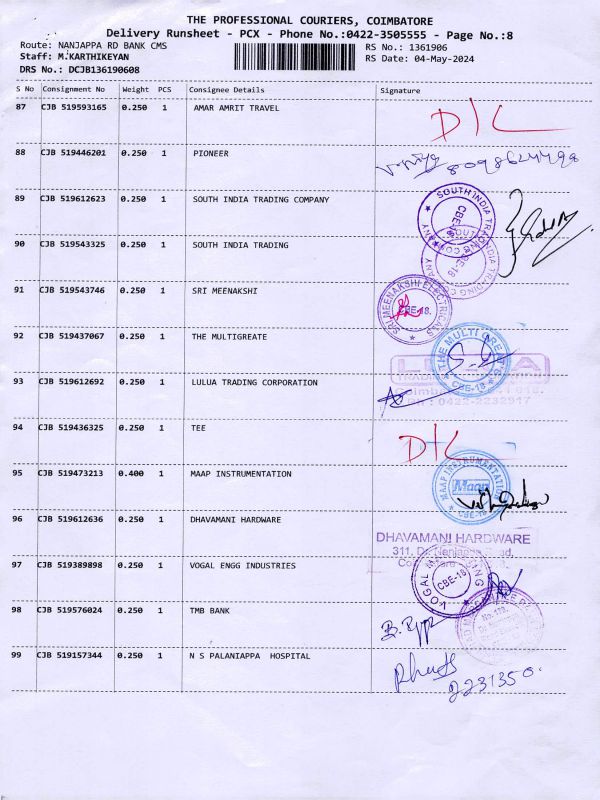 THE PROFESSIONAL COURIERS, COIMBATORE
Delivery Runsheet - PCX - Phone No.:0422-3505555 - Page No.:8
Route: NANJAPPA RD BANK CMS RS No.: 1361906
Staff: M.KARTHIKEYAN RS Date: 04-May-2024
DRS No.: DCJB136190608
S No Consignment No Weight PCS Consignee Details Signature
87 CJB 519593165 0.250 1 AMAR AMRIT TRAVEL D/L
88 CJB 519446201 0.250 1 PIONEER
89 CJB 519612623 0.250 1 SOUTH INDIA TRADING COMPANY
SOUTH INDIA TRADING COMPANY CBE-18
90 CJB 519543325 0.250 1 SOUTH INDIA TRADING
91 CJB 519543746 0.250 1 SRI MEENAKSHI
SRI MEENAKSHI ELECTRICALS CBE-18.
92 CJB 519437067 0.250 1 THE MULTIGREATE
THE MULTI GREATE CBE-18
93 CJB 519612692 0.250 1 LULUA TRADING CORPORATION
0422-2232917
94 CJB 519436325 0.250 1 TEE D/L
95 CJB 519473213 0.400 1 MAAP INSTRUMENTATION
MAAP INSTRUMENTATION Maap CBE-18
96 CJB 519612636 0.250 1 DHAVAMANI HARDWARE
DHAVAMANI HARDWARE
311, Dr. Nanjappa Road,
97 CJB 519389898 0.250 1 VOGAL ENGG INDUSTRIES
CBE-18
98 CJB 519576024 0.250 1 TMB BANK
99 CJB 519157344 0.250 1 N S PALANIAPPA HOSPITAL
2231350.